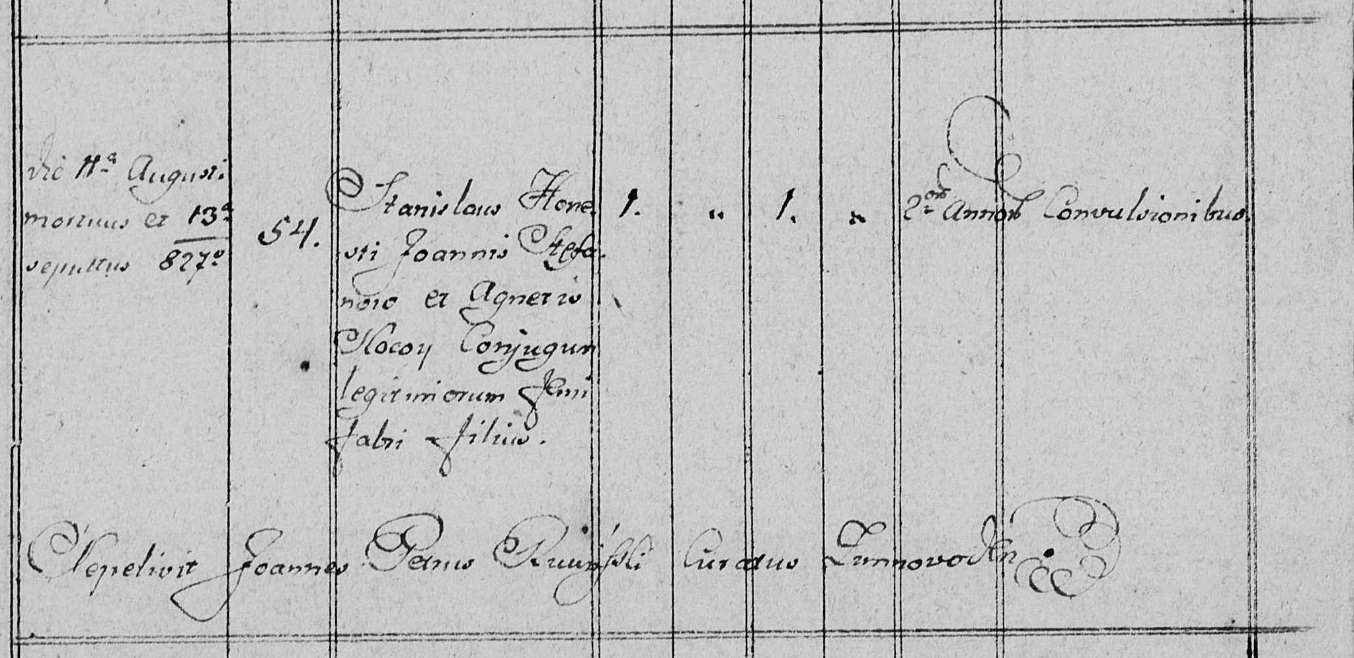 die 11ª Augusti
mortuus et 13ª
sepultus 827º
54.
Stanislaus Hone
sti Joannis Stefa
now et Agnetis
Kocoy Conjugum
legitimorum
fabri filius.
1. „ 1. „ 2 orũ Annorũ Convulsionibus.
Sepelivit Joannes Petrus Curatus